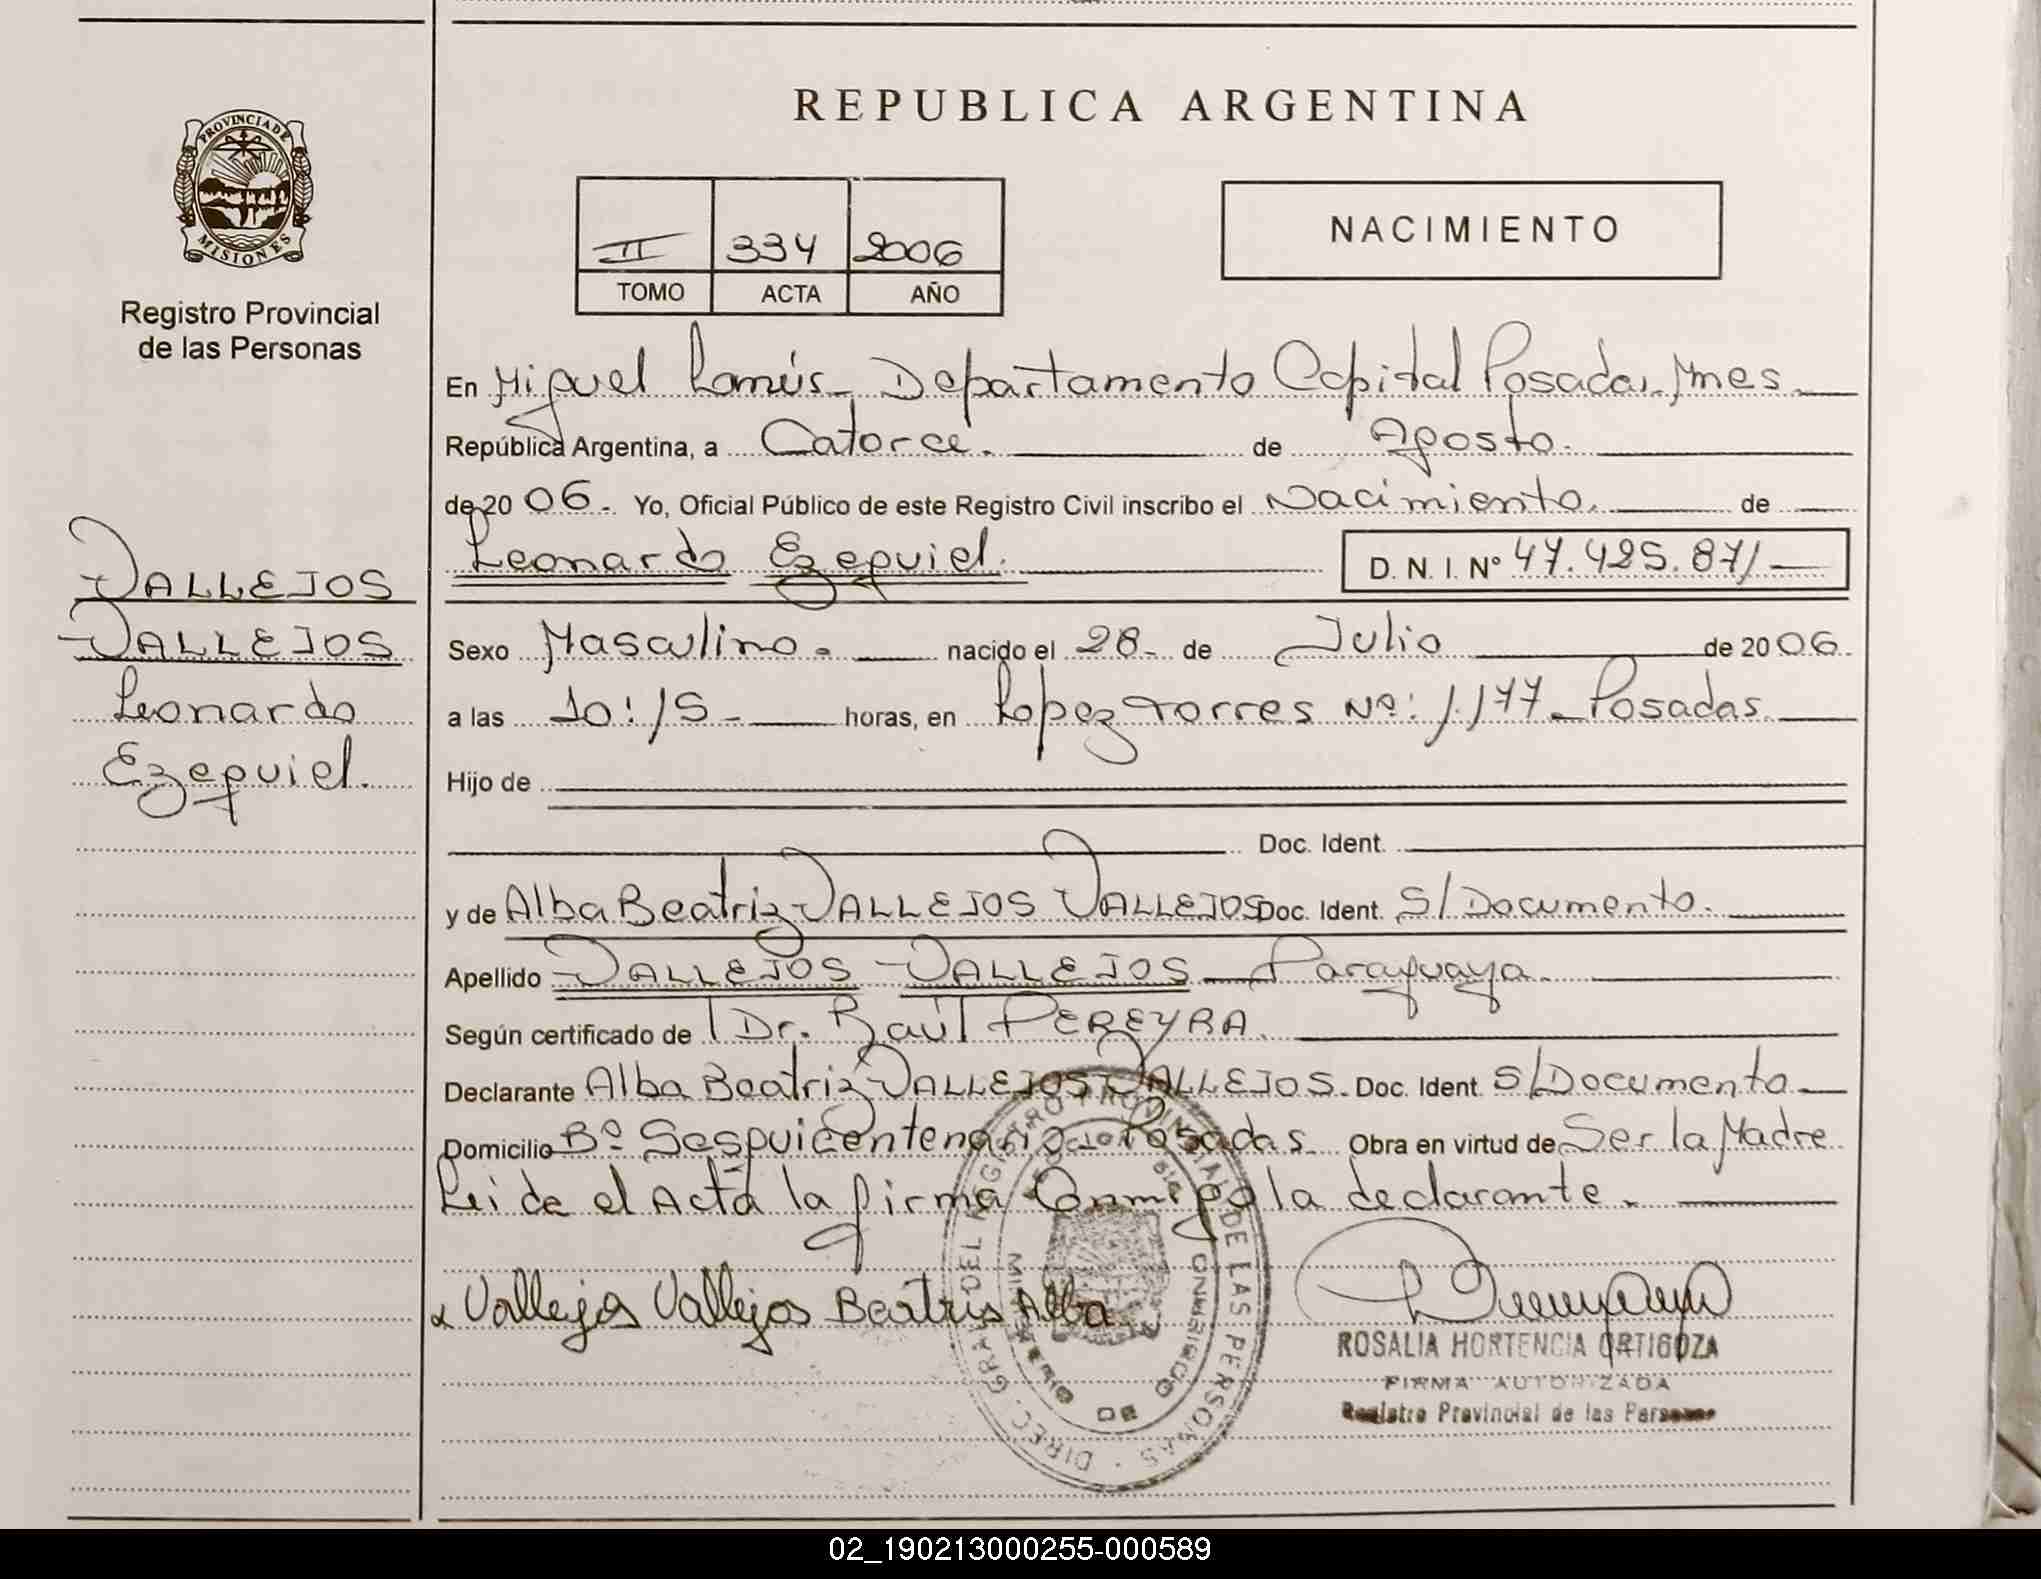 REPUBLICA ARGENTINA
PROVINCIA DE MISIONES
Registro Provincial
de las Personas
II 334 2006
TOMO ACTA AÑO
NACIMIENTO
En Miguel Lanús - Departamento Capital Posadas. Mnes
República Argentina, a Catorce. de Agosto.
de 20 06. Yo, Oficial Público de este Registro Civil inscribo el Nacimiento. de
Leonardo Ezequiel. D. N. I. Nº 47.425.871
VALLEJOS
VALLEJOS
Leonardo
Ezequiel.
Sexo Masculino. nacido el 28 de Julio de 20 06.
a las 10:15 horas, en Lopez Torres Nº: 1.177 - Posadas
Hijo de
Doc. Ident.
y de Alba Beatriz VALLEJOS VALLEJOS Doc. Ident. S/Documento.
Apellido VALLEJOS VALLEJOS - Paraguaya.
Según certificado de Dr. Raúl PEREYRA.
Declarante Alba Beatriz VALLEJOS VALLEJOS. Doc. Ident. S/Documento
Domicilio Bº Sesquicentenario - Posadas. Obra en virtud de Ser la Madre
Leida el Acta la firma Conmigo la declarante.
x Vallejos Vallejos Beatris Alba
DIREC. GRAL. DEL REGISTRO PROVINCIAL DE LAS PERSONAS
ROSALIA HORTENCIA ORTIGOZA
FIRMA AUTORIZADA
Registro Provincial de las Personas
02_190213000255-000589